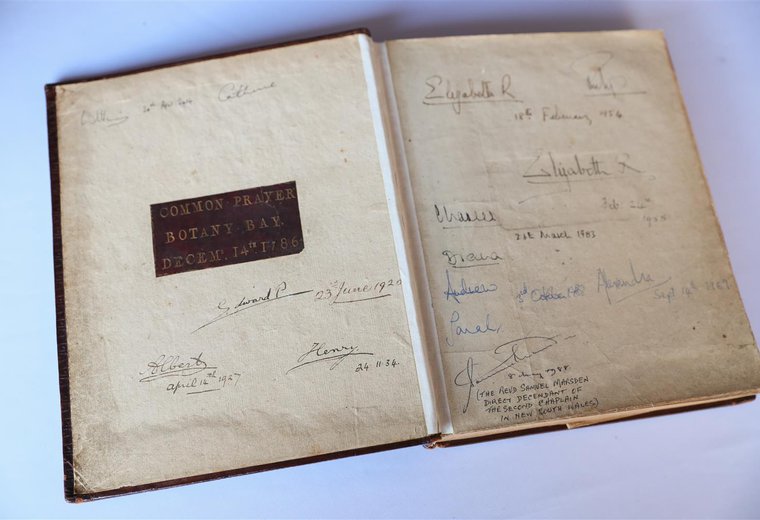 William 20th Apr 2014 Catherine
COMMON PRAYER
BOTANY BAY.
DECEMR. 14TH. 1786
Edward P 23rd June 1920
Albert
April 14th 1927
Henry
24.11.34
Elizabeth R Philip
18th February 1954
Elizabeth R.
Feb 24th
1958
Charles
28th March 1983
Diana
Andrew 3rd October Alexandra
Sept 14th
Sarah
1988
(THE REVD SAMUEL MARSDEN
DIRECT DECENDANT OF
THE SECOND CHAPLAIN
IN NEW SOUTH WALES)